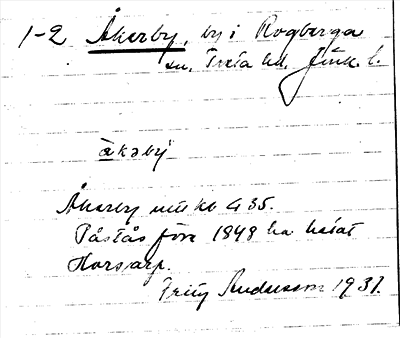 1-2 Åkerby, by i Rogberga
sn, Tveta hd, Jönk. l.
åkəby
Åkerby mtl kb 435.
Påstås före 1848 ha hetat
Horsarp.
Fritz Andersson 1931.